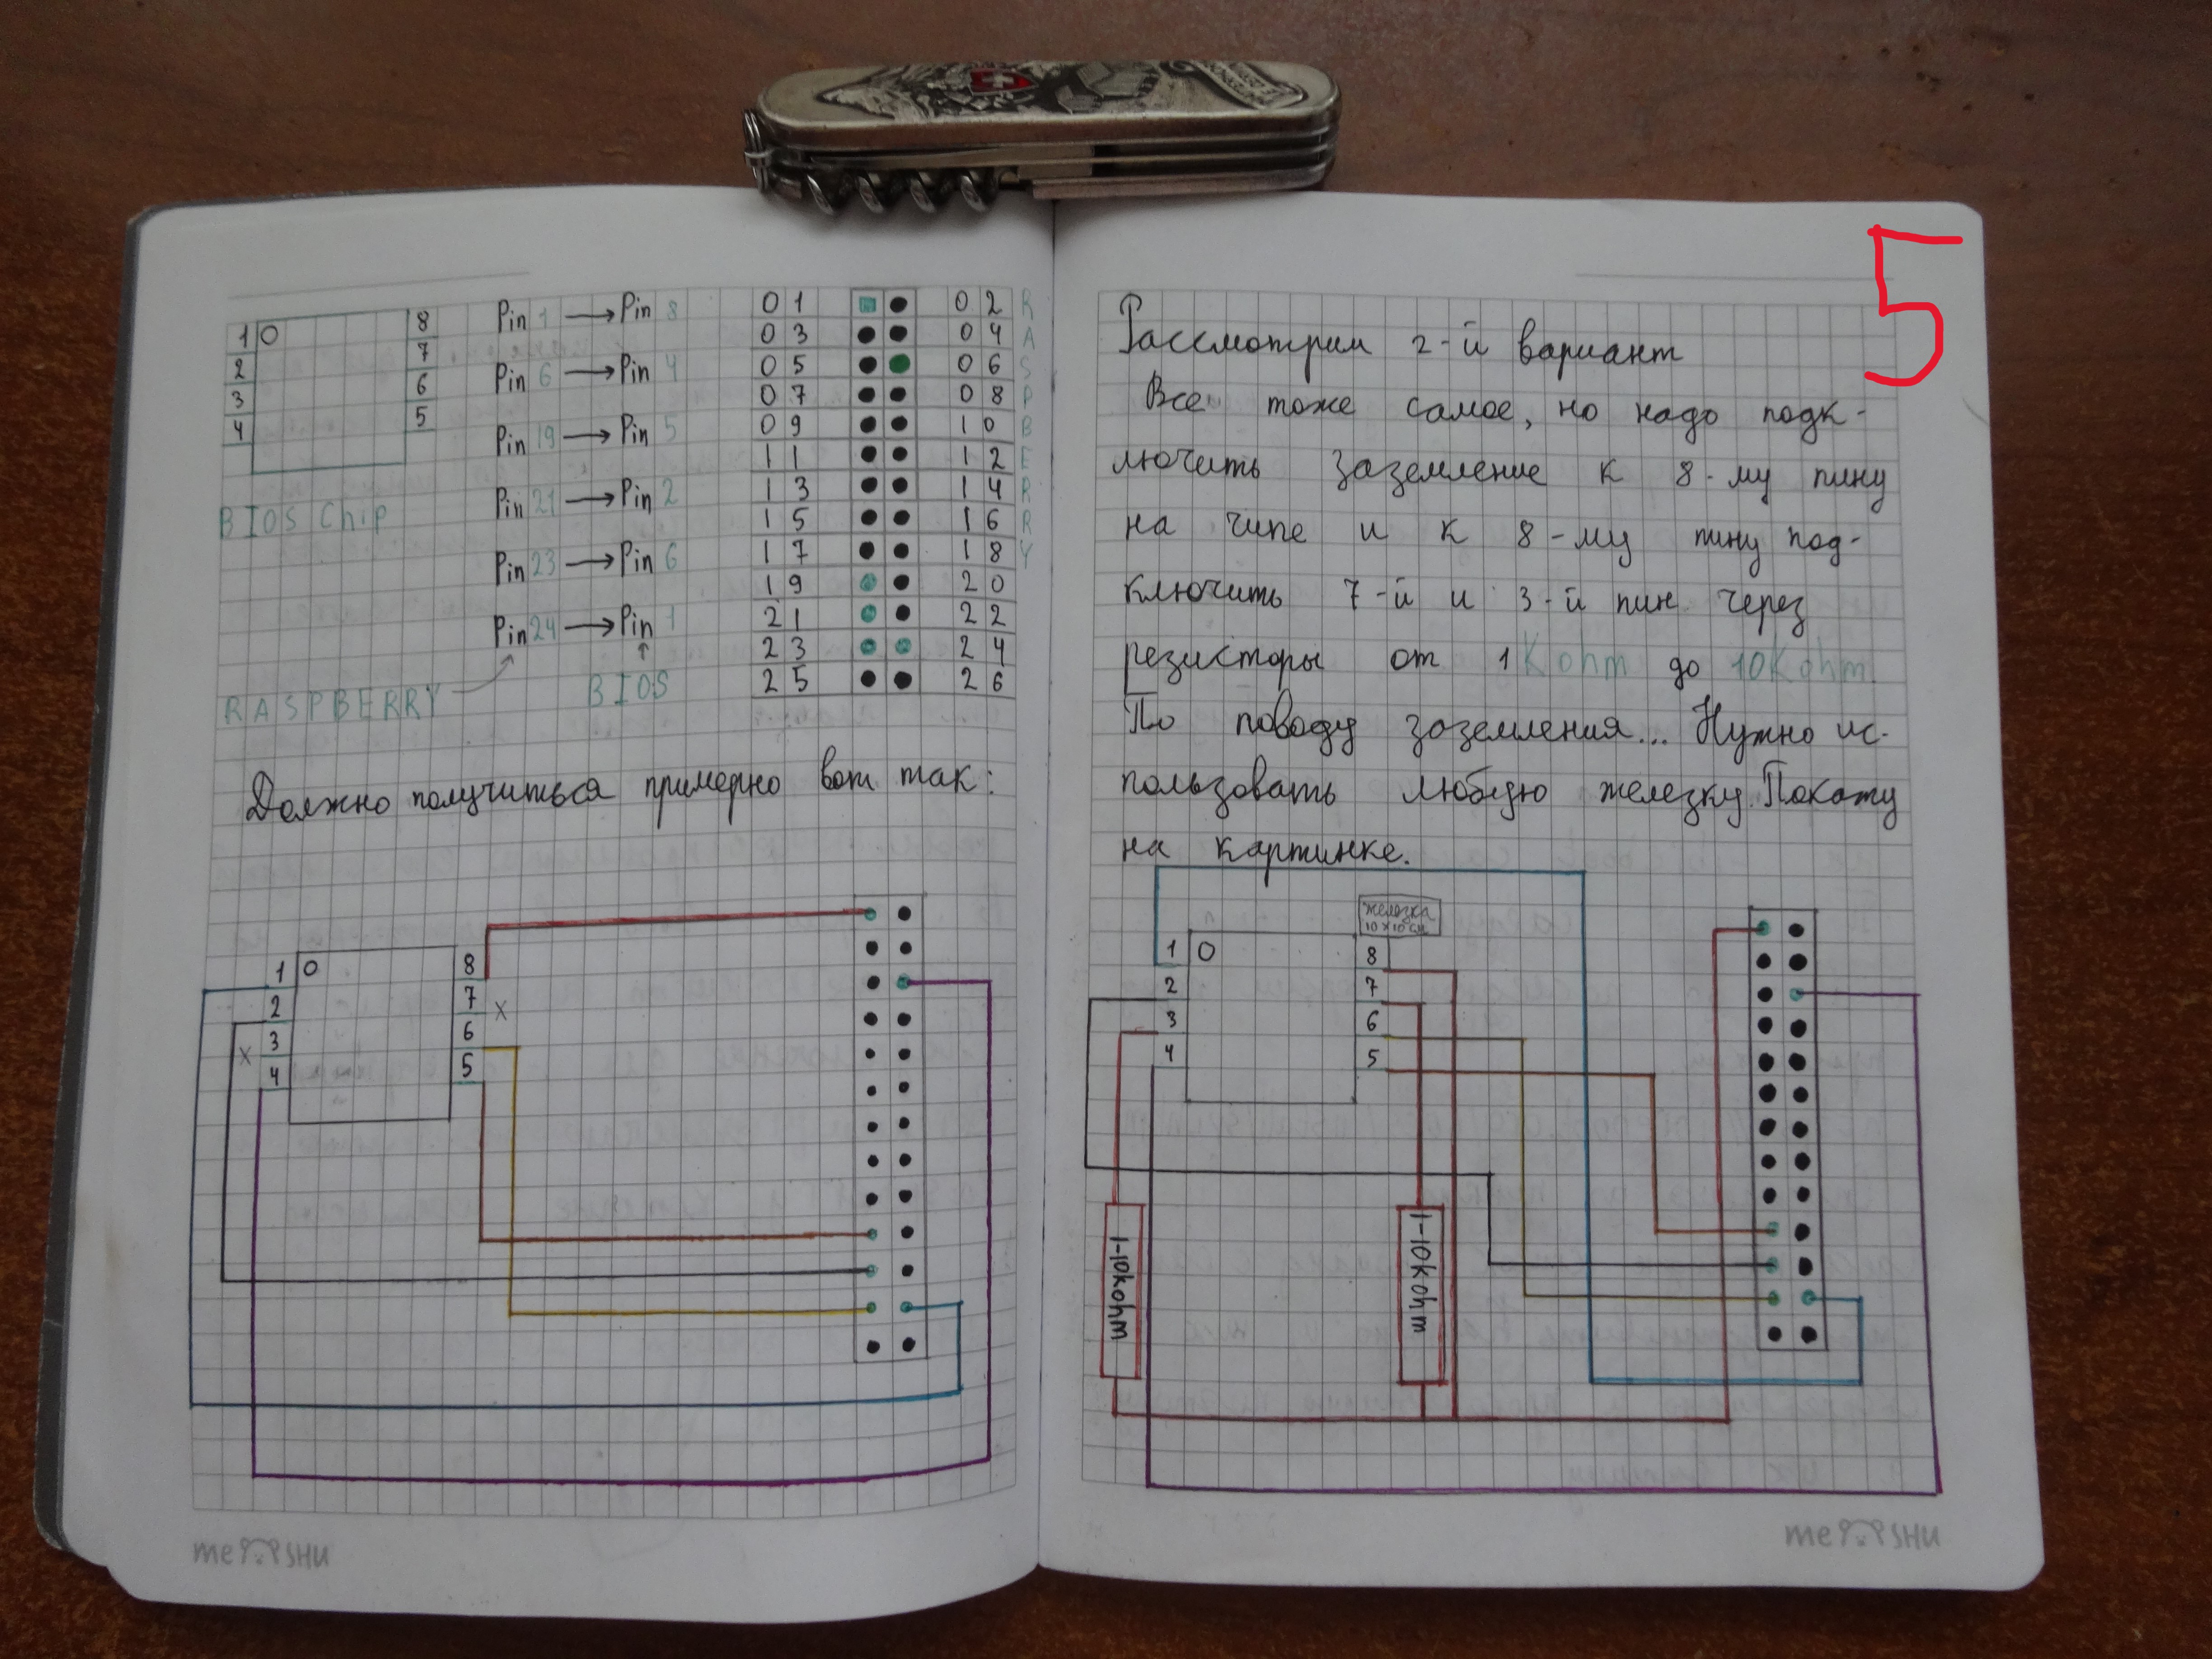 1 O 8
2 7
3 6
4 5
BIOS Chip
Pin 1 → Pin 8
Pin 6 → Pin 4
Pin 19 → Pin 5
Pin 21 → Pin 2
Pin 23 → Pin 6
Pin 24 → Pin 1
RASPBERRY
BIOS
01 02
03 04
05 06
07 08
09 10
11 12
13 14
15 16
17 18
19 20
21 22
23 24
25 26
RASPBERRY
Должно получиться примерно вот так:
1 O 8
2 7 X
X 3 6
4 5
me SHU
5
Рассмотрим 2-й вариант
Все тоже самое, но надо подк-
лючить заземление к 8-му пину
на чипе и к 8-му пину под-
ключить 7-й и 3-й пин через
резисторы от 1Kohm до 10Kohm.
По поводу заземления... Нужно ис-
пользовать любую железку. Покажу
на картинке.
железка
10x10см
1 O 8
2 7
3 6
4 5
1-10kohm
1-10kohm
me SHU